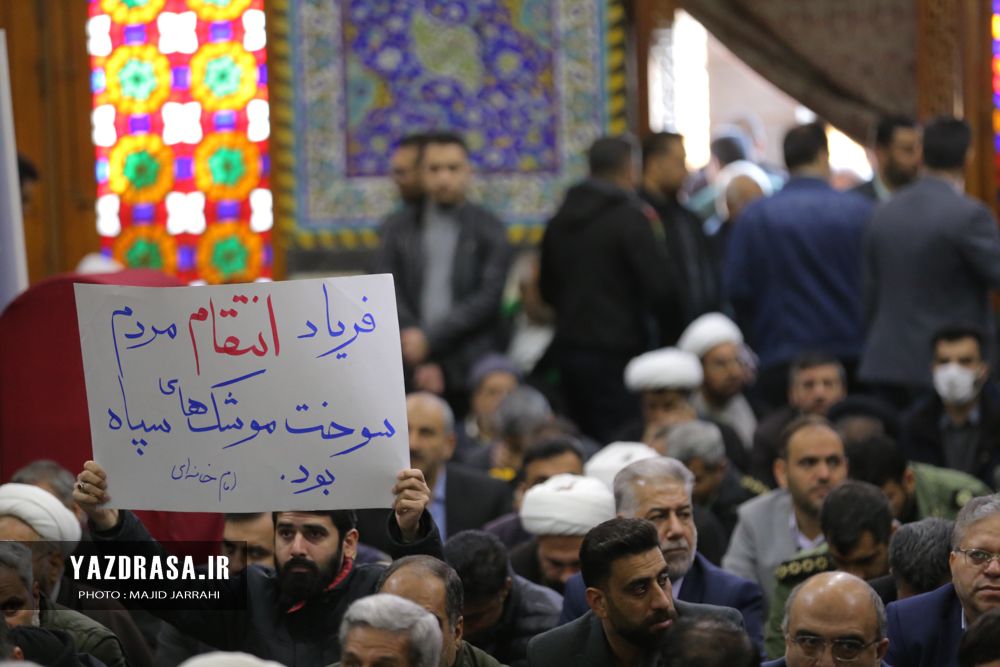 فریاد انتقام مردم
سوخت موشک‌های سپاه
بود.
امام خامنه‌ای
YAZDRASA.IR
PHOTO : MAJID JARRAHI